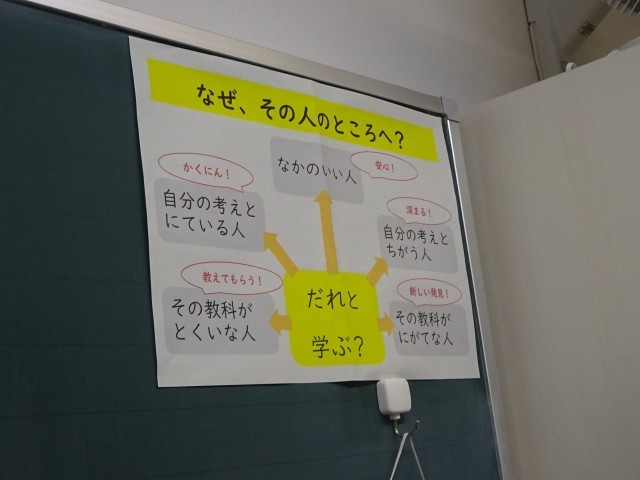 なぜ、その人のところへ?
安心!
なかのいい人
かくにん!
自分の考えと
にている人
深まる!
自分の考えと
ちがう人
教えてもらう!
その教科が
とくいな人
新しい発見!
その教科が
にがてな人
だれと
学ぶ?